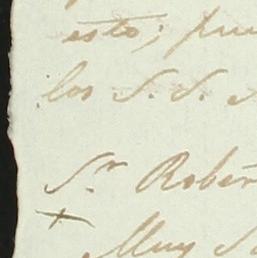 esto; pue
los S. S.
Sr Rober
Muy S